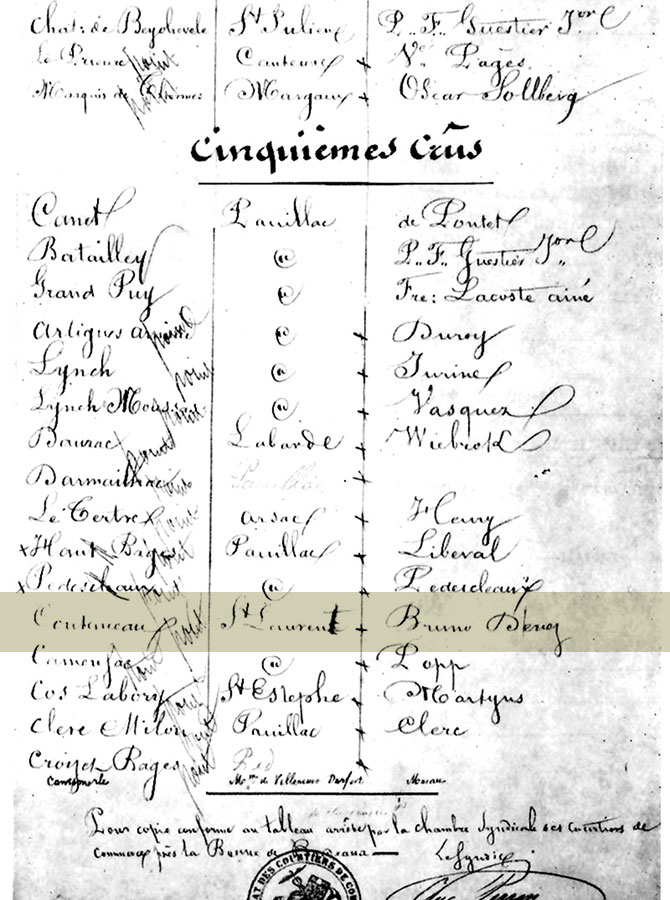 Chat: de Beychevele St Julien P. F. Guestier Jor
Le Prieuré Cantenac + Ve Pagès.
Marquis de Margaux + Oscar Sollberg
Cinquièmes Crûs
Canet Pauillac de Pontet
Batailley @ P.. F.. Guestier Jor
Grand Puy @ Fre: Lacoste ainé
Artigues @ + Duroy
Lynch @ + Jurine
Lynch Mous @ + Vasquez
Dauzac Labarde + Wiebrok
Darmailhac Pauillac +
Le Tertre Arsac + Henry
+ Haut Bages Pauillac + Liberal
+ Pedesclaux @ + Pedesclaux
Coutenceau St Laurent + Bruno Devez
Camensac @ + Popp
Cos Labory St Estephe + Martyns
Clerc Milon Pauillac + Clerc
Croizet Bages +
Cantemerle Mme de Villeneuve Durfort Macau
Pour copie conforme au tableau arrêté par la chambre Syndicale des Courtiers de
Commerce près la Bourse de
Le Syndic
AT DES COURTIERS DE COM